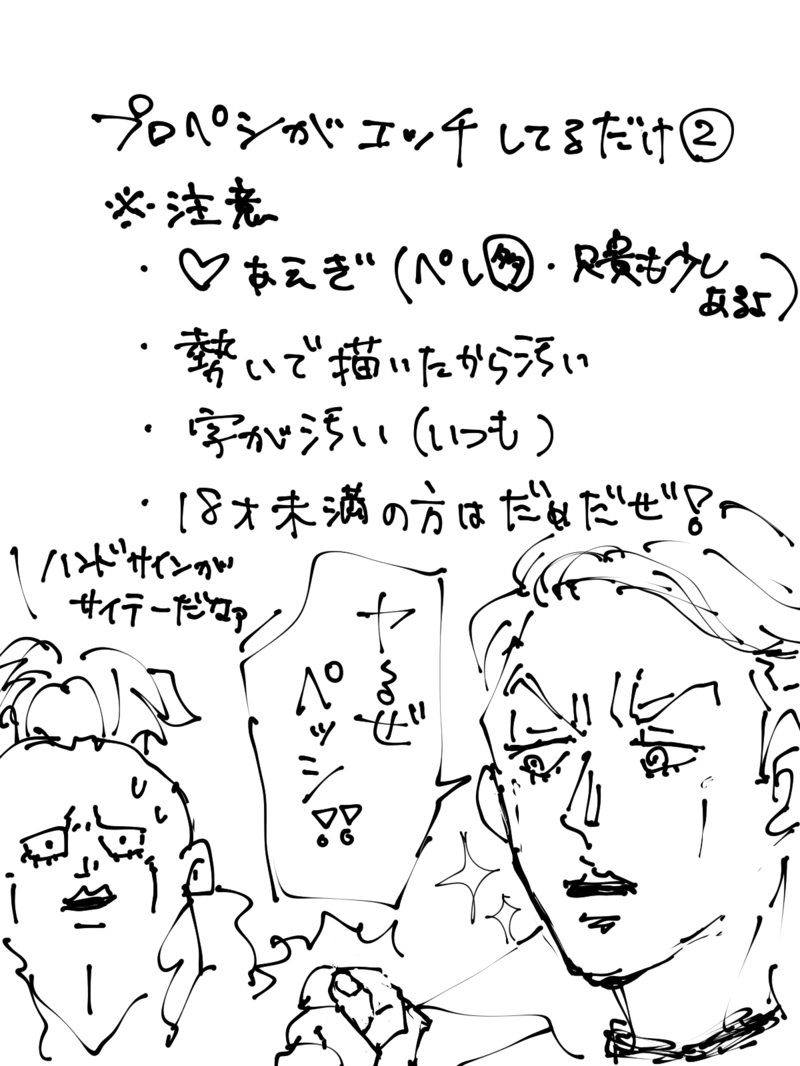 プロペシがエッチしてるだけ②
※注意
・♡あえぎ(ペし多・兄貴も少し
あるよ)
・勢いで描いたから汚い
・字が汚い(いつも)
・18才未満の方はだめだぜ!
ハンドサインが
サイテーだなァ
ヤるぜ
ペッシ!!